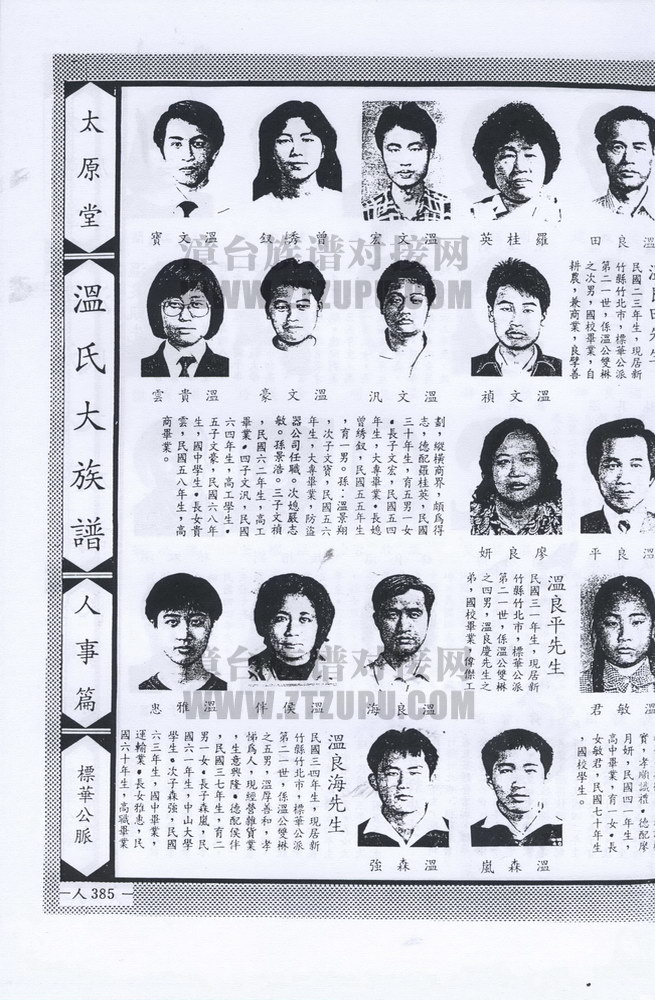 太原堂
溫氏大族譜
人事篇
標華公脈
人385
田良溫
英桂羅
宏文溫
釵秀曾
寶文溫
民國二三年生，現居新
竹縣竹北市，標華公派
第二一世，係溫公雙琳
之次男，國校畢業，自
耕農，兼商業，良孳善
禎文溫
汎文溫
豪文溫
雲貴溫
劃，縱橫商界，頗為得
志，德配羅桂英，民國
三十年生，育五男一女
。長子文宏，民國五四
年生，大專畢業。長媳
曾綉釵，民國五五年生
，育一男。孫：溫景翔
，次子文寶，民國五六
年生，大專畢業，防盜
器公司任職。次媳嚴志
敏。孫景浩。三子文禎
，民國六二年生，高工
畢業。四子文汎，民國
六四年生，高工學生。
五子文豪，民國六八年
生，國中學生。長女貴
雲，民國五八年生，高
商畢業。
平良溫
妍良廖
溫良平先生
民國三一年生，現居新
竹縣竹北市，標華公派
第二一世，係溫公雙琳
之四男，溫良慶先生之
弟，國校畢業，偉傑工
君敏溫
海良溫
伴侯溫
惠雅溫
月妍，民國四一年生，
高中畢業，育一女。長
女敏君，民國七十年生
，國校學生。
嵐森溫
強森溫
溫良海先生
民國三四年生，現居新
竹縣竹北市，標華公派
第二一世，係溫公雙琳
之五男，溫厚善和，孝
悌為人，現經營雜貨業
，生意興隆。德配侯伴
，民國三七年生，育二
男一女。長子森嵐，民
國六一年生，中山大學
學生。次子森強，民國
六三年生，國中畢業，
運輸業。長女雅惠，民
國六十年生，高職畢業
漳台族谱对接网
WWW.ZTZUPU.COM
漳台族谱对接网
WWW.ZTZUPU.COM